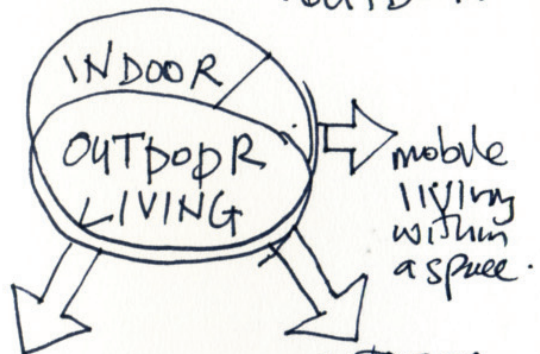 INDOOR
OUTDOOR
LIVING
mobile
living
within
a space.